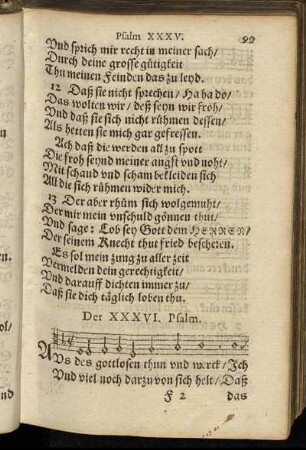 Psalm XXXV. 99
Vnd sprich mir recht in meiner sach/
Durch deine grosse gütigkeit
Thu meinen Feinden das zu leyd.
12 Daß sie nicht sprechen/ Ha ha do/
Das wolten wir/ deß seyn wir froh/
Vnd daß sie sich nicht rühmen dessen/
Als hetten sie mich gar gefressen.
Ach daß die werden all zu spott
Die froh seynd meiner angst vnd noht/
Mit schand vnd scham bekleiden sich
All die sich rühmen wider mich.
13 Der aber rhüm sich wolgemuht/
Der mir mein vnschuld gönnen thut/
Vnd sage: Lob sey Gott dem HERREN/
Der seinem Knecht thut fried bescheren.
Es sol mein zung zu aller zeit
Vermelden dein gerechtigkeit/
Vnd darauff dichten immer zu/
Daß sie dich täglich loben thu.
Der XXXVI. Psalm.
AVs des gottlosen thun vnd werck/ Ich
Vnd viel noch darzu von sich helt/ Daß
F 2 das